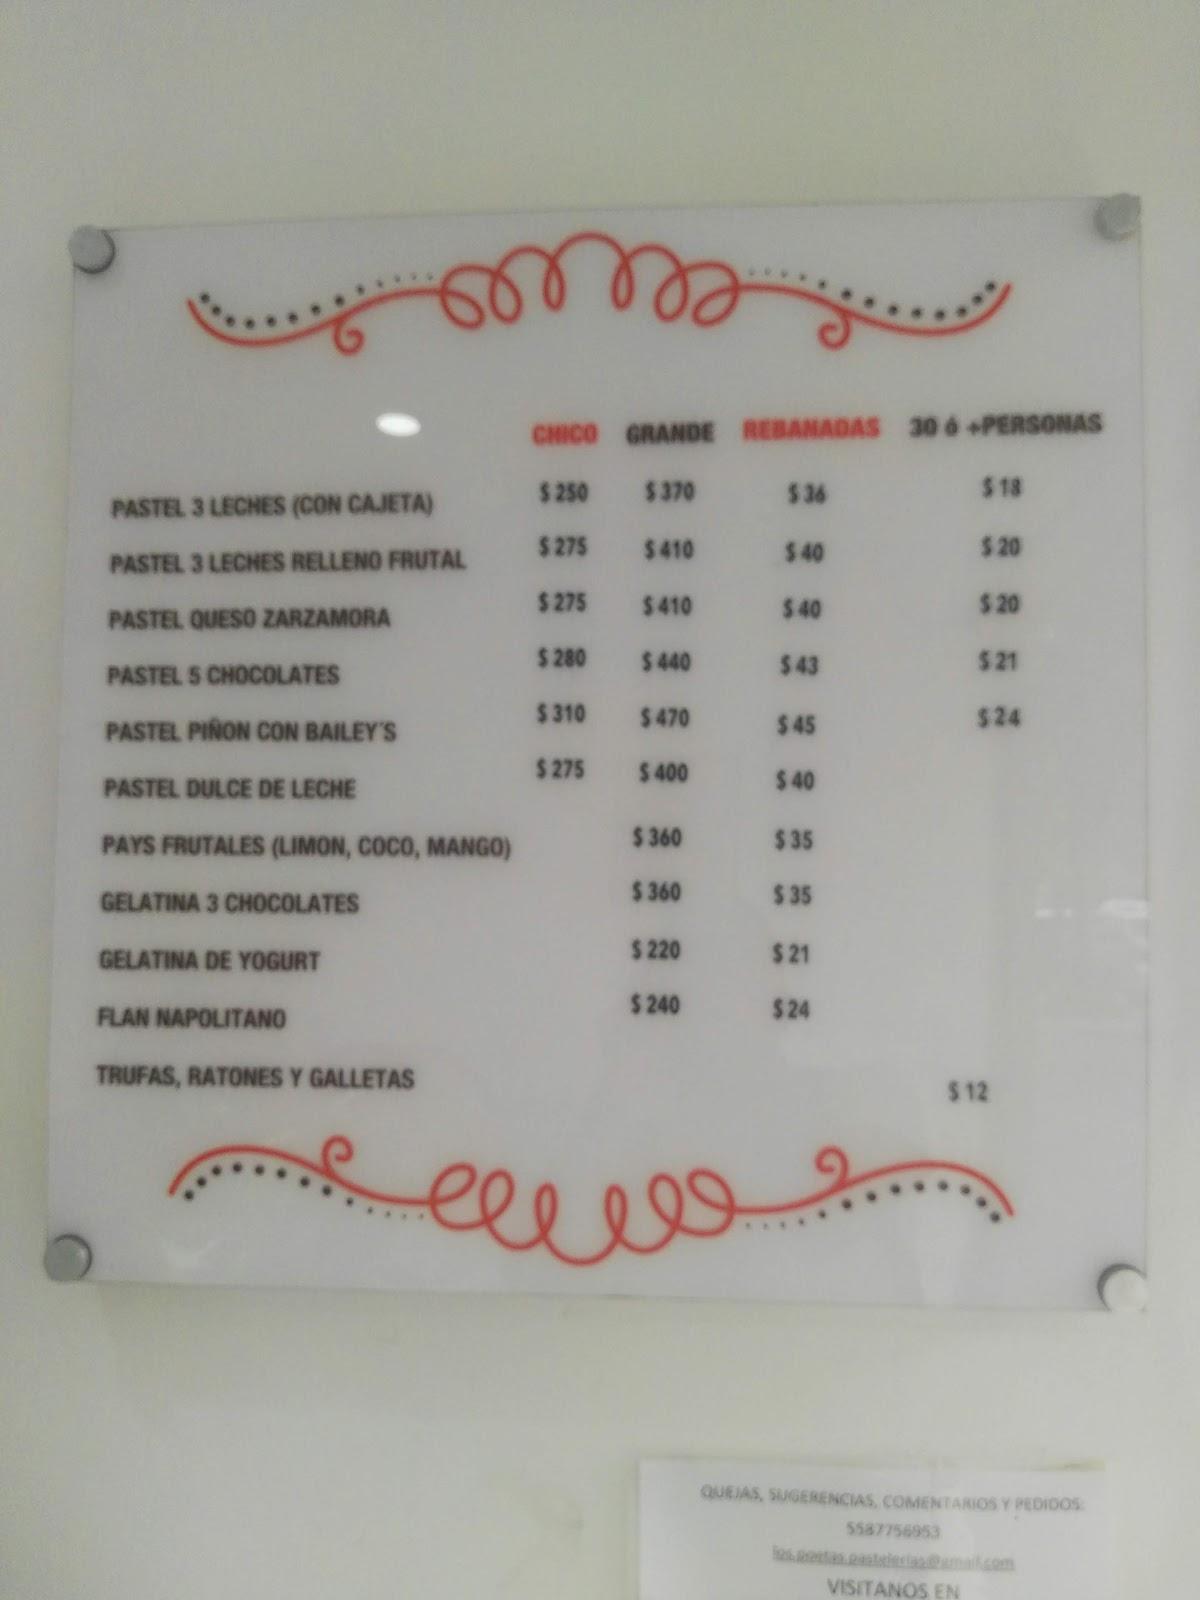 CHICO GRANDE REBANADAS 30 ó +PERSONAS
PASTEL 3 LECHES (CON CAJETA) $ 250 $ 370 $ 36 $ 18
PASTEL 3 LECHES RELLENO FRUTAL $ 275 $ 410 $ 40 $ 20
PASTEL QUESO ZARZAMORA $ 275 $ 410 $ 40 $ 20
PASTEL 5 CHOCOLATES $ 280 $ 440 $ 43 $ 21
PASTEL PIÑON CON BAILEY´S $ 310 $ 470 $ 45 $ 24
PASTEL DULCE DE LECHE $ 275 $ 400 $ 40
PAYS FRUTALES (LIMON, COCO, MANGO) $ 360 $ 35
GELATINA 3 CHOCOLATES $ 360 $ 35
GELATINA DE YOGURT $ 220 $ 21
FLAN NAPOLITANO $ 240 $ 24
TRUFAS, RATONES Y GALLETAS $ 12
QUEJAS, SUGERENCIAS, COMENTARIOS Y PEDIDOS:
5587756953
los.poetas.pastelerias@gmail.com
VISITANOS EN